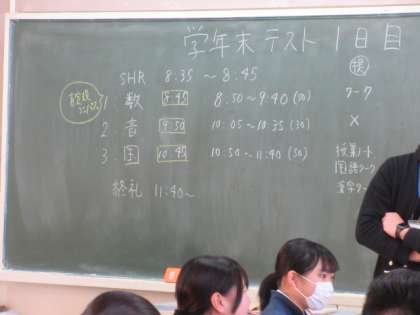 学年末テスト1日目
SHR 8:35 〜 8:45 提
1. 数 8:45 8:50〜9:40(50) ワーク
2. 音 9:50 10:05〜10:35(30) ×
3. 国 10:45 10:50〜11:40(50) 授業ノート
国語ワーク
漢字ワーク
終礼 11:40〜